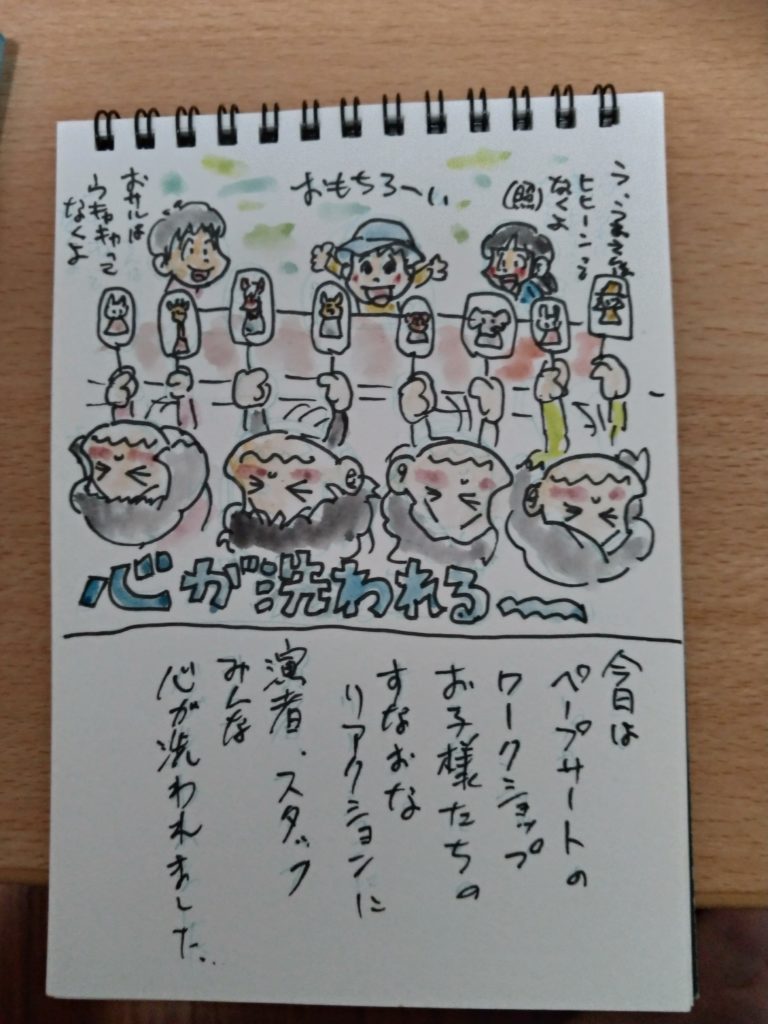 う、うまさんは
ヒヒーンって
なくよ
(照)
おもちろーい
おサルは
ウキャキャって
なくよ
心が洗われる〜
今日は
ペープサートの
ワークショップ
お子様たちの
すなおな
リアクションに
演者、スタッフ
みんな
心が洗われました。